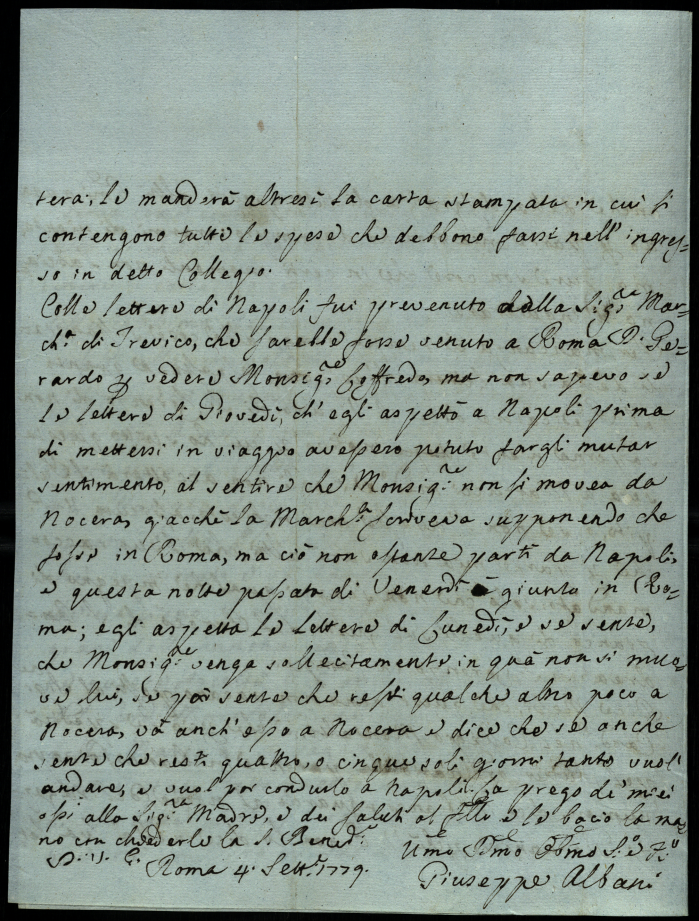 tera, le manderà altresì la carta stampata in cui si
contengono tutte le spese che debbono farsi nell' ingres=
so in detto Collegio.
Colle lettere di Napoli fui prevenuto dalla Sig.ra Mar=
ch.a di Trevico, che sarebbe forse venuto a Roma D. Ge=
rardo p vedere Monsig.re Loffredo, ma non sapevo se
le lettere di Giovedì, ch' egli aspettò a Napoli prima
di mettersi in viaggio avessero potuto fargli mutar
sentimento, al sentire che Monsig.re non si movea da
Nocera, giacchè la March.a scriveva supponendo che
fosse in Roma, ma ciò non ostante partì da Napoli,
e questa notte passata di Venerdì è giunto in Ro=
ma; egli aspetta le lettere di Lunedì, e se sente,
che Monsig.re venga sollecitamente in quà non si muo=
ve lui, se poi sente che resti qualche altro poco a
Nocera, và anch' esso a Nocera e dice che se anche
sente che resti quattro, o cinque soli giorni tanto vuol'
andare, e vuol poi condurlo a Napoli. La prego de' miei
ossi alla Sig.ra Madre, e dei saluti al Fllo e le bacio la ma=
no con chiederle la S. Bened.e
D. V. E.
Umo Dmo Obmo S.e e F.o
Roma 4. Sett.e 1779.
Giuseppe Albani